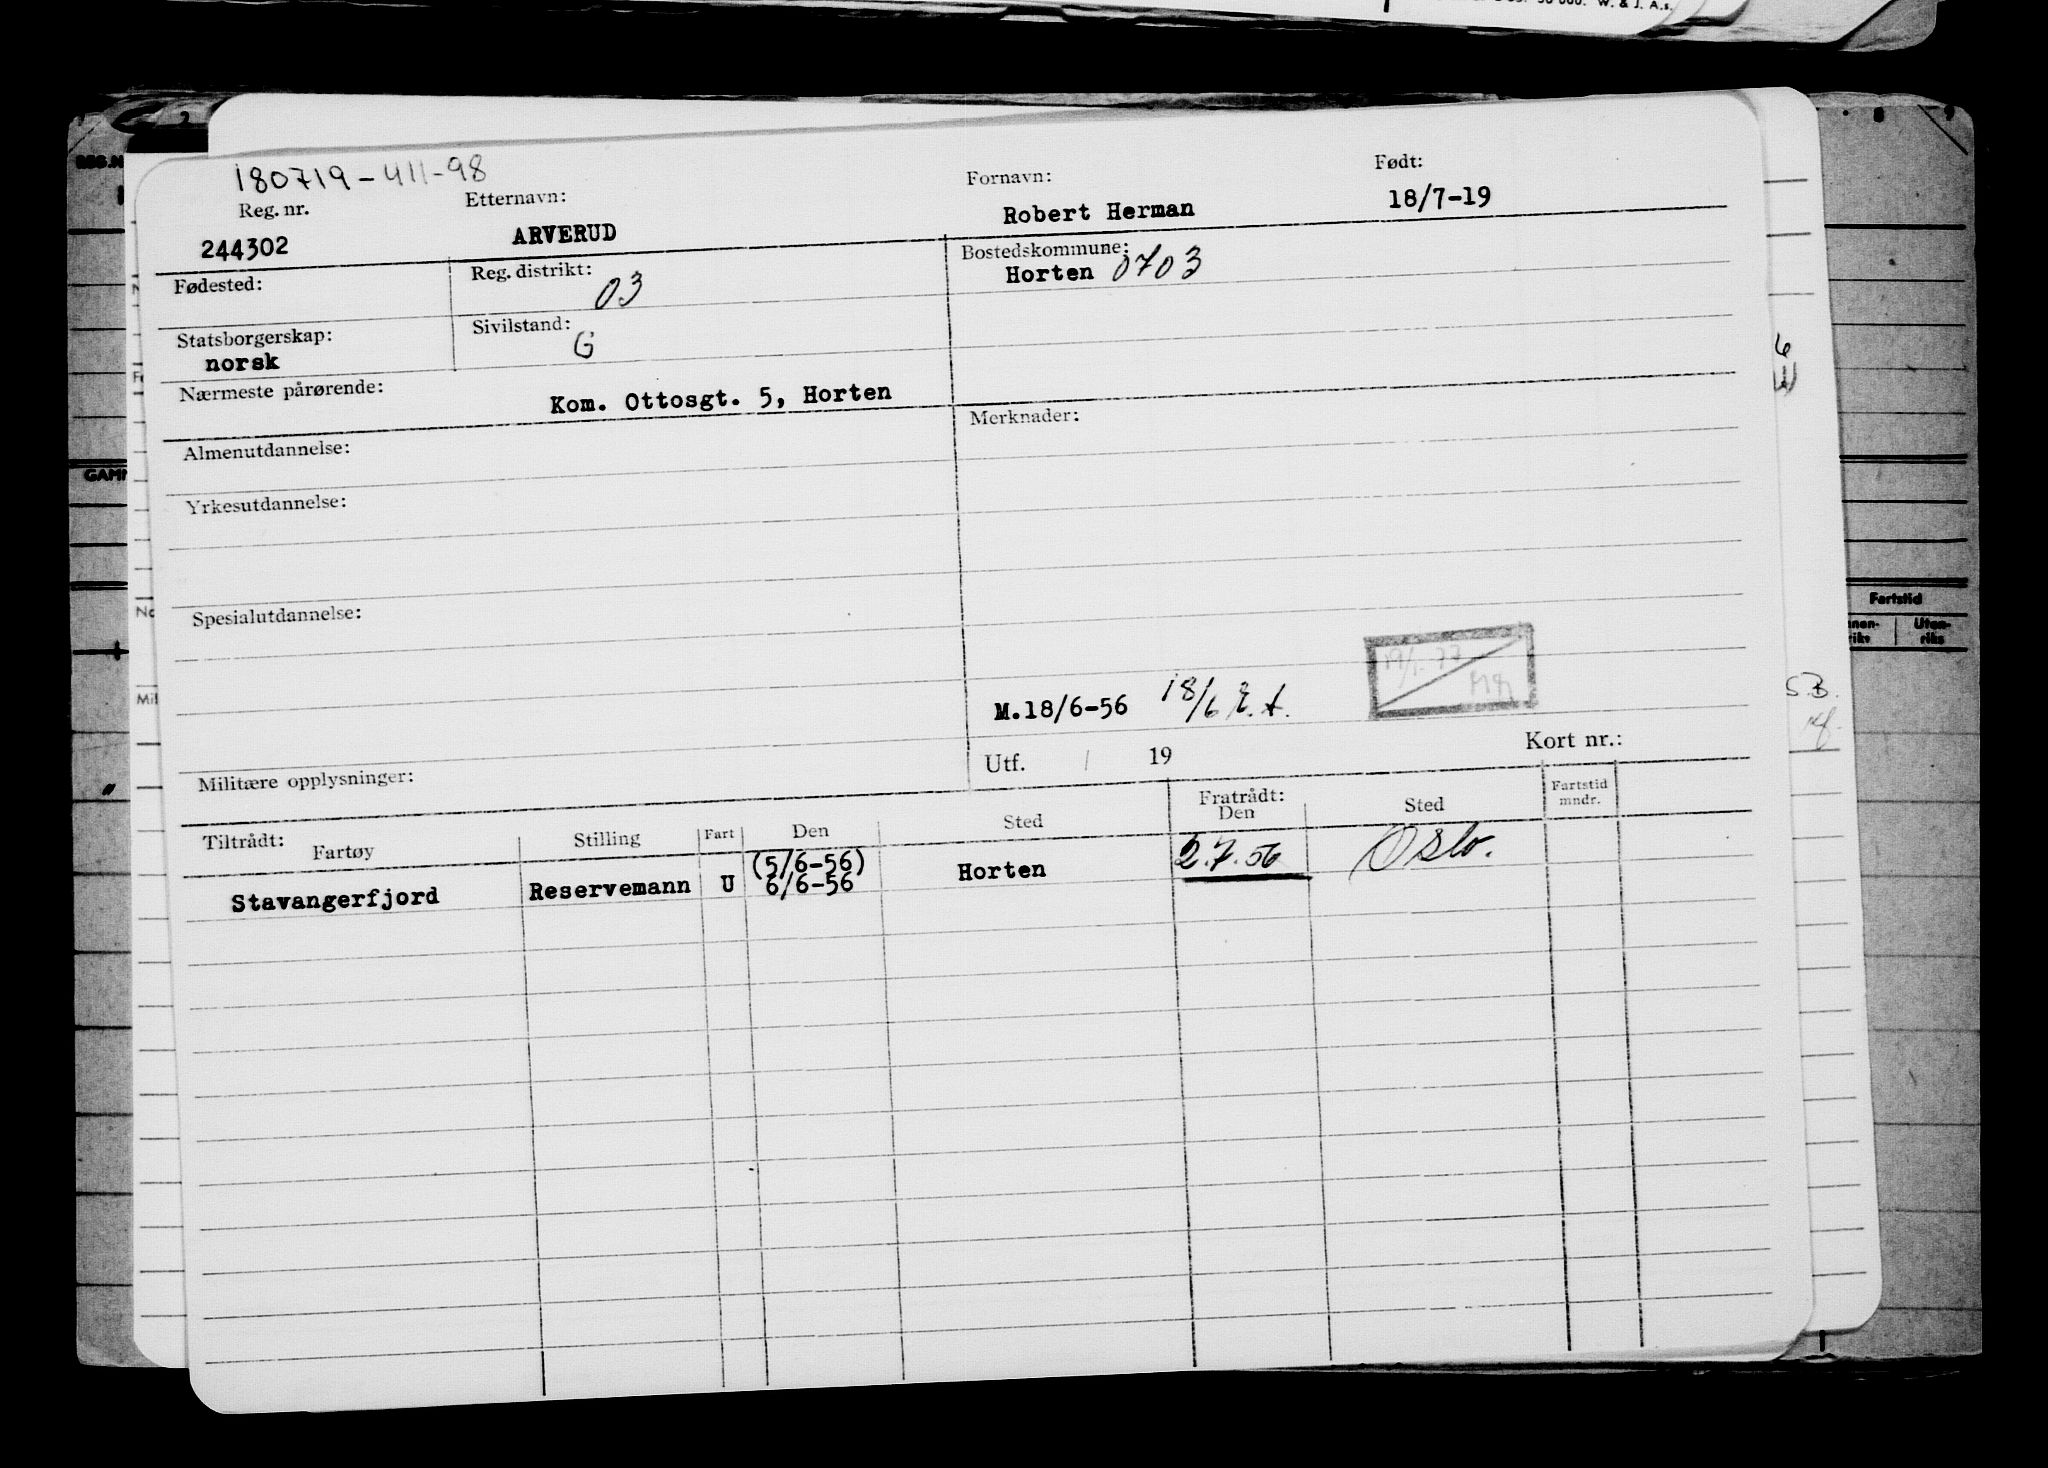 50 000. W. & J. A.s.
180719-411-98
Reg. nr. Etternavn: Fornavn: Født:
244302 ARVERUD Robert Herman 18/7-19
Fødested: Reg. distrikt: 03 Bostedskommune:
Horten 0703
Statsborgerskap: Sivilstand:
norsk G
Nærmeste pårørende:
Kom. Ottosgt. 5, Horten
Almenutdannelse: Merknader:
Yrkesutdannelse:
Spesialutdannelse:
M.18/6-56 18/6
Militære opplysninger: Utf. / 19 Kort nr.:
Tiltrådt: Fratrådt: Fartstid
Fartøy Stilling Fart Den Sted Den Sted mndr.
(5/6-56)
Stavangerfjord Reservemann U 6/6-56 Horten 2.7.56 Oslo.
GAMM
Fartstid
Utenriks
S.B.